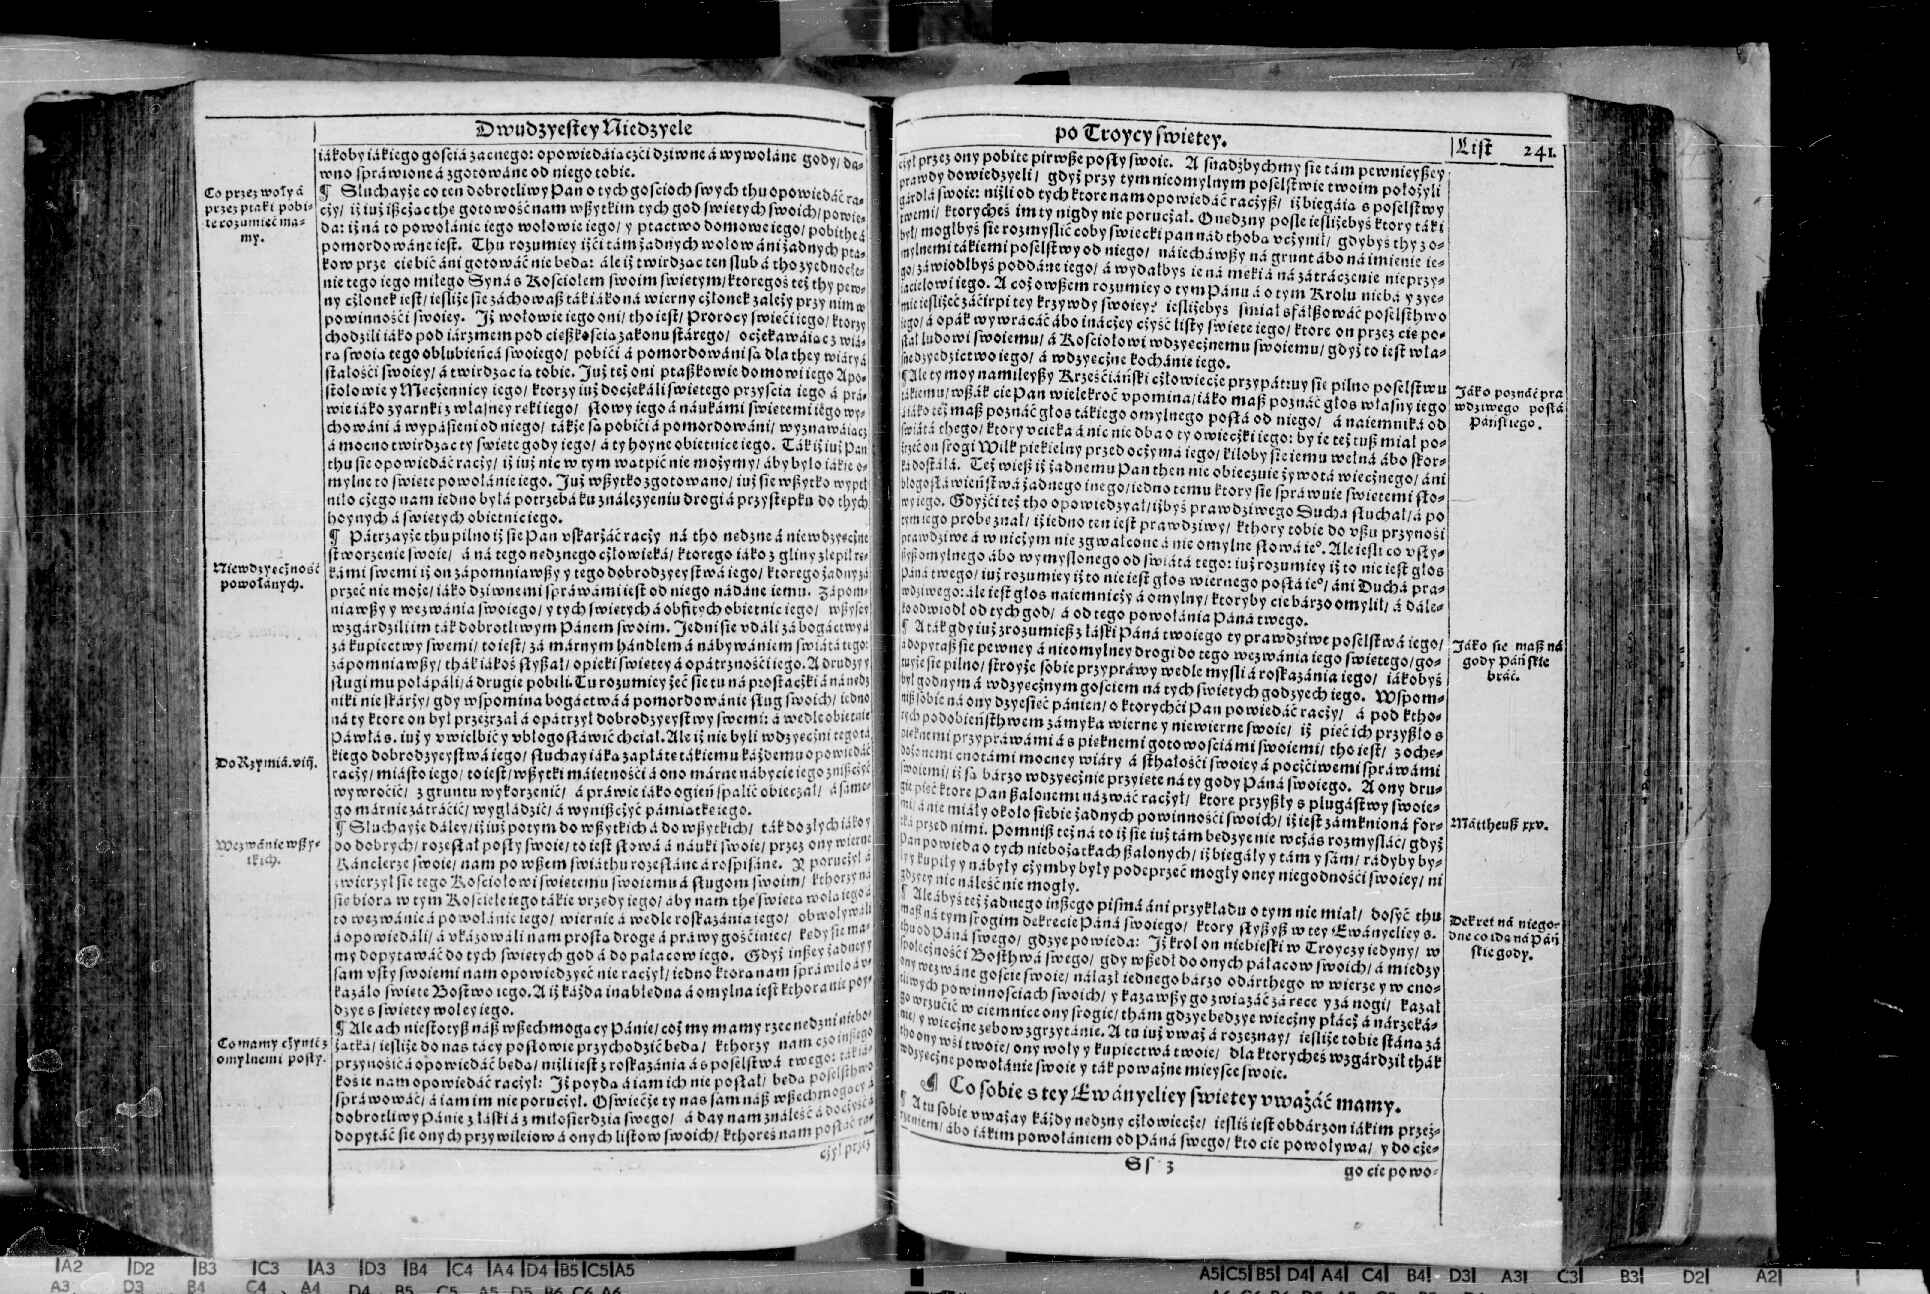 Dwudzyestey Niedzyele
iákoby iákiego gościá zacnego: opowiedáiączći dziwne á wywoláne gody/ dą-
wno spráwione á zgotowáne od niego tobie.
¶ Słuchayże co ten dobrotliwy Pan o tych gościoch swych thu opowiedáć ra-
cży/ iż iuż iszcżąc the gotowość nam wszytkim tych god swiętych swoich/ powie-
da: iż ná to powołánie iego wołowie iego/ y ptactwo domowe iego/ pobithe á
pomordowáne iest. Thu rozumiey iżći tám żadnych wołow áni żadnych ptá-
kow prze cie bić áni gotowáć nie będą: ále iż twirdząc ten slub á tho zyednocże-
nie tego iego miłego Syná s Kościołem swoim swiętym/ ktoregoś też thy pew-
ny cżłonek iest/ ieśliże sie záchowasz ták iáko ná wierny cżłonek zależy przy nim w
powinnośći swoiey. Iż wołowie iego oni/ tho iest/ Prorocy swięći iego/ ktorzy
chodzili iáko pod iárzmem pod cięszkością zakonu stárego/ ocżekawáiąc z wiá-
rą swoią tego oblubieńcá swoiego/ pobići á pomordowáni są dla they wiáry á
stałośći swoiey/ á twirdząc ią tobie. Iuż też oni ptaszkowie domowi iego Apo-
stołowie y Męcżennicy iego/ ktorzy iuż docżekáli swiętego przyścia iego á prá-
wie iáko zyarnki z własney ręki iego/ słowy iego á náukámi swiętemi iego wy-
chowáni á wypásieni od niego/ tákże są pobići á pomordowáni/ wyznawáiąc
á mocno twirdząc ty swięte gody iego/ á ty hoyne obietnice iego. Ták iż iuż Pan
thu sie opowiedáć racży/ iż iuż nic w tym wątpić nie możymy/ áby było iákie o-
mylne to swięte powołánie iego. Iuż wszytko zgotowano/ iuż sie wszytko wypeł
niło cżego nam iedno byłá potrzebá ku ználezyeniu drogi á przystępku do thych
hoynych á swiętych obietnic iego.
¶ Pátrzayże thu pilno iż sie Pan vskarżáć racży ná tho nędzne á niewdzyęcżne
stworzenie swoie/ á ná tego nędznego cżłowieká/ ktorego iáko z gliny zlepił rę-
kámi swemi iż on zápomniawszy y tego dobrodzyeystwá iego/ ktorego żadny zá
przeć nie może/ iáko dziwnemi spráwámi iest od niego nádáne iemu. Zápom-
niawszy y wezwánia swoiego/ y tych swiętych á obfitych obietnic iego/ wszyscy
wzgárdzili im ták dobrotliwym Pánem swoim. Iedni sie vdáli zá bogáctwy á
zá kupiectwy swemi/ to iest/ zá marnym hándlem á nábywánim swiátá tego:
zápomniawszy/ thák iákoś słyszał/ opieki swiętey á opátrznośći iego. A drudzy y
sługi mu połápáli/ á drugie pobili. Tu rozumiey żeć sie tu ná prostacżki á ná nędz
niki nie skárży/ gdy wspomina bogáctwá á pomordowánie sług swoich/ iedno
ná ty ktore on był przeźrzał á opátrzył dobrodzyeystwy swemi: á wedle obietnic
Páwłá s. iuż y vwielbić y vbłogosławić chciał. Ale iż nie byli wdzyęcżni tego tá
kiego dobrodzyeystwá iego/ słuchay iáką zapłátę tákiemu káżdemu opowiedáć
racży/ miásto iego/ to iest/ wszytki máiętnośći á ono márne nábycie iego zniszcżyć
wywroćić/ z gruntu wykorzenić/ á práwie iáko ogień spalić obiecżał/ á sáme-
go márnie zátráćić/ wygládzić/ á wyniszcżyć pámiątkę iego.
¶ Słuchayże dáley/ iż iuż potym do wszytkich á do wszytkich/ ták do złych iáko y
do dobrych/ rozesłał posły swoie/ to iest słowá á náuki swoie/ przez ony wierne
Kánclerze swoie/ nam po wszem swiáthu rozesłáne á rospisáne. Y porucżył á
zwierzył sie tego Kościołowi swiętemu swoiemu á sługom swoim/ kthorzy ná
się biorą w tym Kościele iego tákie vrzędy iego/ áby nam the swiętą wolą iego á
to wezwánie á powołánie iego/ wiernie á wedle roskazánia iego/ obwoływáli
á opowiedáli/ á vkázowáli nam prostą drogę á práwy gośćiniec/ kędy sie ma-
my dopytawáć do tych swiętych god á do páłacow iego. Gdyż inszey żadney y
sam vsty swoiemi nam opowiedzyeć nie racżył/ iedno ktora nam spráwiło á v-
kazáło swięte Bostwo iego. A iż káżda ina błędna á omylna iest kthora nie poy-
dzye s swiętey woley iego.
¶ Ale ach niestotysz nász wszechmogący Pánie/ coż my mamy rzec nędzni niebo-
żątka/ ieśliże do nas tácy posłowie przychodzić będą/ kthorzy nam czo inszego
przynosić á opowiedáć będą/ niżli iest z roskazánia á s poselstwá twego: ták iá-
koś ie nam opowiedáć racżył: Iż poydą á iam ich nie posłał/ będą poselsthwo
spráwowáć/ á iam im nie porucżył. Oświećże ty nas sam nász wszechmogący á
dobrotliwy Pánie z łáski á z miłosierdzia swego/ á day nam ználeść á docżyść á
dopytáć sie onych przywileiow á onych listow swoich/ kthoreś nam posłáć rá-
cżył przez
Co przez woły á
przez ptaki pobi-
te rozumieć ma-
my.
Niewdzyęcżność
powołánych.
Do Rzymiá. viij.
Wezwánie wszy-
tkich.
Co mamy cżynić z
omylnemi posły.
po Troycy swiętey.
List 241.
cżył przez ony pobite pirwsze posły swoie. A snadźbychmy sie tám pewnieyszey
prawdy dowiedzyeli/ gdyż przy tym nieomylnym poselstwie twoim położyli
gárdłá swoie: niżli od tych ktore nam opowiedáć racżysz/ iż biegáią s poselstwy
twemi/ ktorycheś im ty nigdy nie porucżał. O nędzny pośle ieśliżebyś ktory táki
był/ mogłbyś sie rozmyślić coby swiecki pan nád thobą vcżynił/ gdybyś thy z o-
mylnemi tákiemi poselstwy od niego/ náiechawszy ná grunt ábo ná imienie ie-
go/ záwiodłbyś poddáne iego/ á wydałbyś ie ná męki á ná zátrácżenie nieprzy-
iacielowi iego. A coż owszem rozumiey o tym Pánu á o tym Krolu niebá y zye-
mie ieśliżeć záćirpi tey krzywdy swoiey? ieśliżebyś śmiał sfałszowáć poselsthwo
iego/ á opák wywrácáć ábo inácżey cżyść listy swięte iego/ ktore on przez cię po-
słał ludowi swoiemu/ á Kościołowi wdzyęcżnemu swoiemu/ gdyż to iest wła-
sne dzyedzictwo iego/ á wdzyęcżne kochánie iego.
¶ Ale ty moy namileyszy Krześćiáński cżłowiecże przypátruy sie pilno poselstwu
tákiemu/ wszák cię Pan wielekroć vpomina/ iáko masz poznáć głos własny iego
á iáko też masz poznáć głos tákiego omylnego posłá od niego/ á naiemniká od
swiátá thego/ ktory vcieka á nic nie dba o ty owiecżki iego: by ie też tusz miał po-
żrzeć on srogi Wilk piekielny przed ocżymá iego/ kiloby sie iemu wełná ábo skor-
ká dostáłá. Też wiesz iż żadnemu Pan then nie obiecżuie żywotá wiecżnego/ áni
błogosłáwieństwá żadnego inego/ iedno temu ktory sie spráwuie swiętemi sło-
wy iego. Gdyżći też tho opowiedzyał/ iżbyś prawdziwego Duchá słuchał/ á po
tym iego probę znał/ iż iedno ten iest prawdziwy/ kthory tobie do vszu przynośi
prawdziwe á w nicżym nie zgwałcone á nie omylne słowá ie°. Ale ieśli co vsły-
szysz omylnego ábo wymyślonego od swiátá tego: iuż rozumiey iż to nie iest głos
Páná twego/ iuż rozumiey iż to nie iest głos wiernego posłá ie°/ áni Duchá pra-
wdziwego: ále iest głos naiemnicży á omylny/ ktoryby cię bárzo omylił/ á dále-
ko odwiodł od tych god/ á od tego powołánia Páná twego.
¶ A ták gdy iuż zrozumiesz z łáski Páná twoiego ty prawdziwe poselstwá iego/
á dopytasz sie pewney á nieomylney drogi do tego wezwánia iego swiętego/ go-
tuyże sie pilno/ stroyże sobie przypráwy wedle myśli á roskazánia iego/ iákobyś
był godnym á wdzyęcżnym gościem ná tych swiętych godzyech iego. Wspom-
nisz sobie ná ony dzyesięć pánien/ o ktorychći Pan powiedáć racży/ á pod ktho-
rych podobieństhwem zámyka wierne y niewierne swoie/ iż pięć ich przyszło s
pięknemi przypráwámi á s pięknemi gotowośćiámi swoiemi/ tho iest/ z ochę-
dożonemi cnotámi mocney wiáry á sthałośći swoiey á pocżćiwemi spráwámi
swoiemi/ iż są bárzo wdzyęcżnie przyięte ná ty gody Páná swoiego. A ony dru-
gie pięć ktore Pan szalonemi názwáć racżył/ ktore przyszły s plugástwy swoie-
mi/ á nie miáły około siebie żadnych powinnośći swoich/ iż iest zámkniona for-
tká przed nimi. Pomnisz też ná to iż sie iuż tám będzye nie wcżás rozmyśláć/ gdyż
Pan powieda o tych niebożątkach szalonych/ iż biegáły y tám y sám/ rádyby by-
ły kupiły y nábyły cżymby były podeprzeć mogły oney niegodnośći swoiey/ ni
gdzyey nic náleść nie mogły.
¶ Ale ábyś też żadnego inszego pismá áni przykładu o tym nie miał/ dosyć thu
masz ná tym srogim dekrecie Páná swoiego/ ktory słyszysz w tey Ewányeliey s.
thu od Páná swego/ gdzye powieda: Iż krol on niebieski w Troyczy iedyny/ w
społecżnośći Bosthwá swego/ gdy wszedł do onych páłacow swoich/ á miedzy
ony wezwáne goście swoie/ nálazł iednego bárzo odárthego w wierze y w cno-
tliwych powinnościach swoich/ y kazawszy go związáć zá ręce y zá nogi/ kazał
go wrzućić w ciemnice ony srogie/ thám gdzye będzye wiecżny płácż á nárzeká-
nie/ y wiecżne zębow zgrzytánie. A tu iuż vważ á rozeznay/ ieśliże tobie stáną zá
tho ony wśi twoie/ ony woły y kupiectwá twoie/ dla ktorycheś wzgárdził thák
wdzyęcżne powołánie swoie y ták poważne mieysce swoie.
¶ Co sobie s tey Ewányeliey swiętey vważáć mamy.
¶ A tu sobie vważay káżdy nędzny cżłowiecże/ ieśliś iest obdárzon iákim przeź-
rzeniem/ ábo iákim powołániem od Páná swego/ kto cię powoływa/ y do cże-
Ss 3
go cię powo-
Iáko poznáć pra
wdziwego posłá
Páńskiego.
Iáko sie masz ná
gody Páńskie
bráć.
Mattheusz xxv.
Dekret ná niego-
dne co idą ná Páń
skie gody.
A2 D2 B3 C3 A3 D3 B4 C4 A4 D4 B5 C5 A5
A5 C5 B5 D4 A4 C4 B4 D3 A3 C3 B3 D2 A2